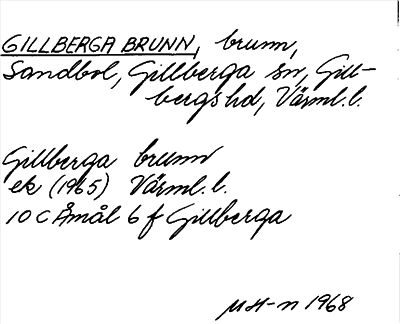 GILLBERGA BRUNN, brunn,
Sandbol, Gillberga sn, Gill-
bergs hd, Värml. l.
Gillberga brunn
ek (1965) Värml. l.
10 C Åmål 6 f Gillberga
MH-n 1968